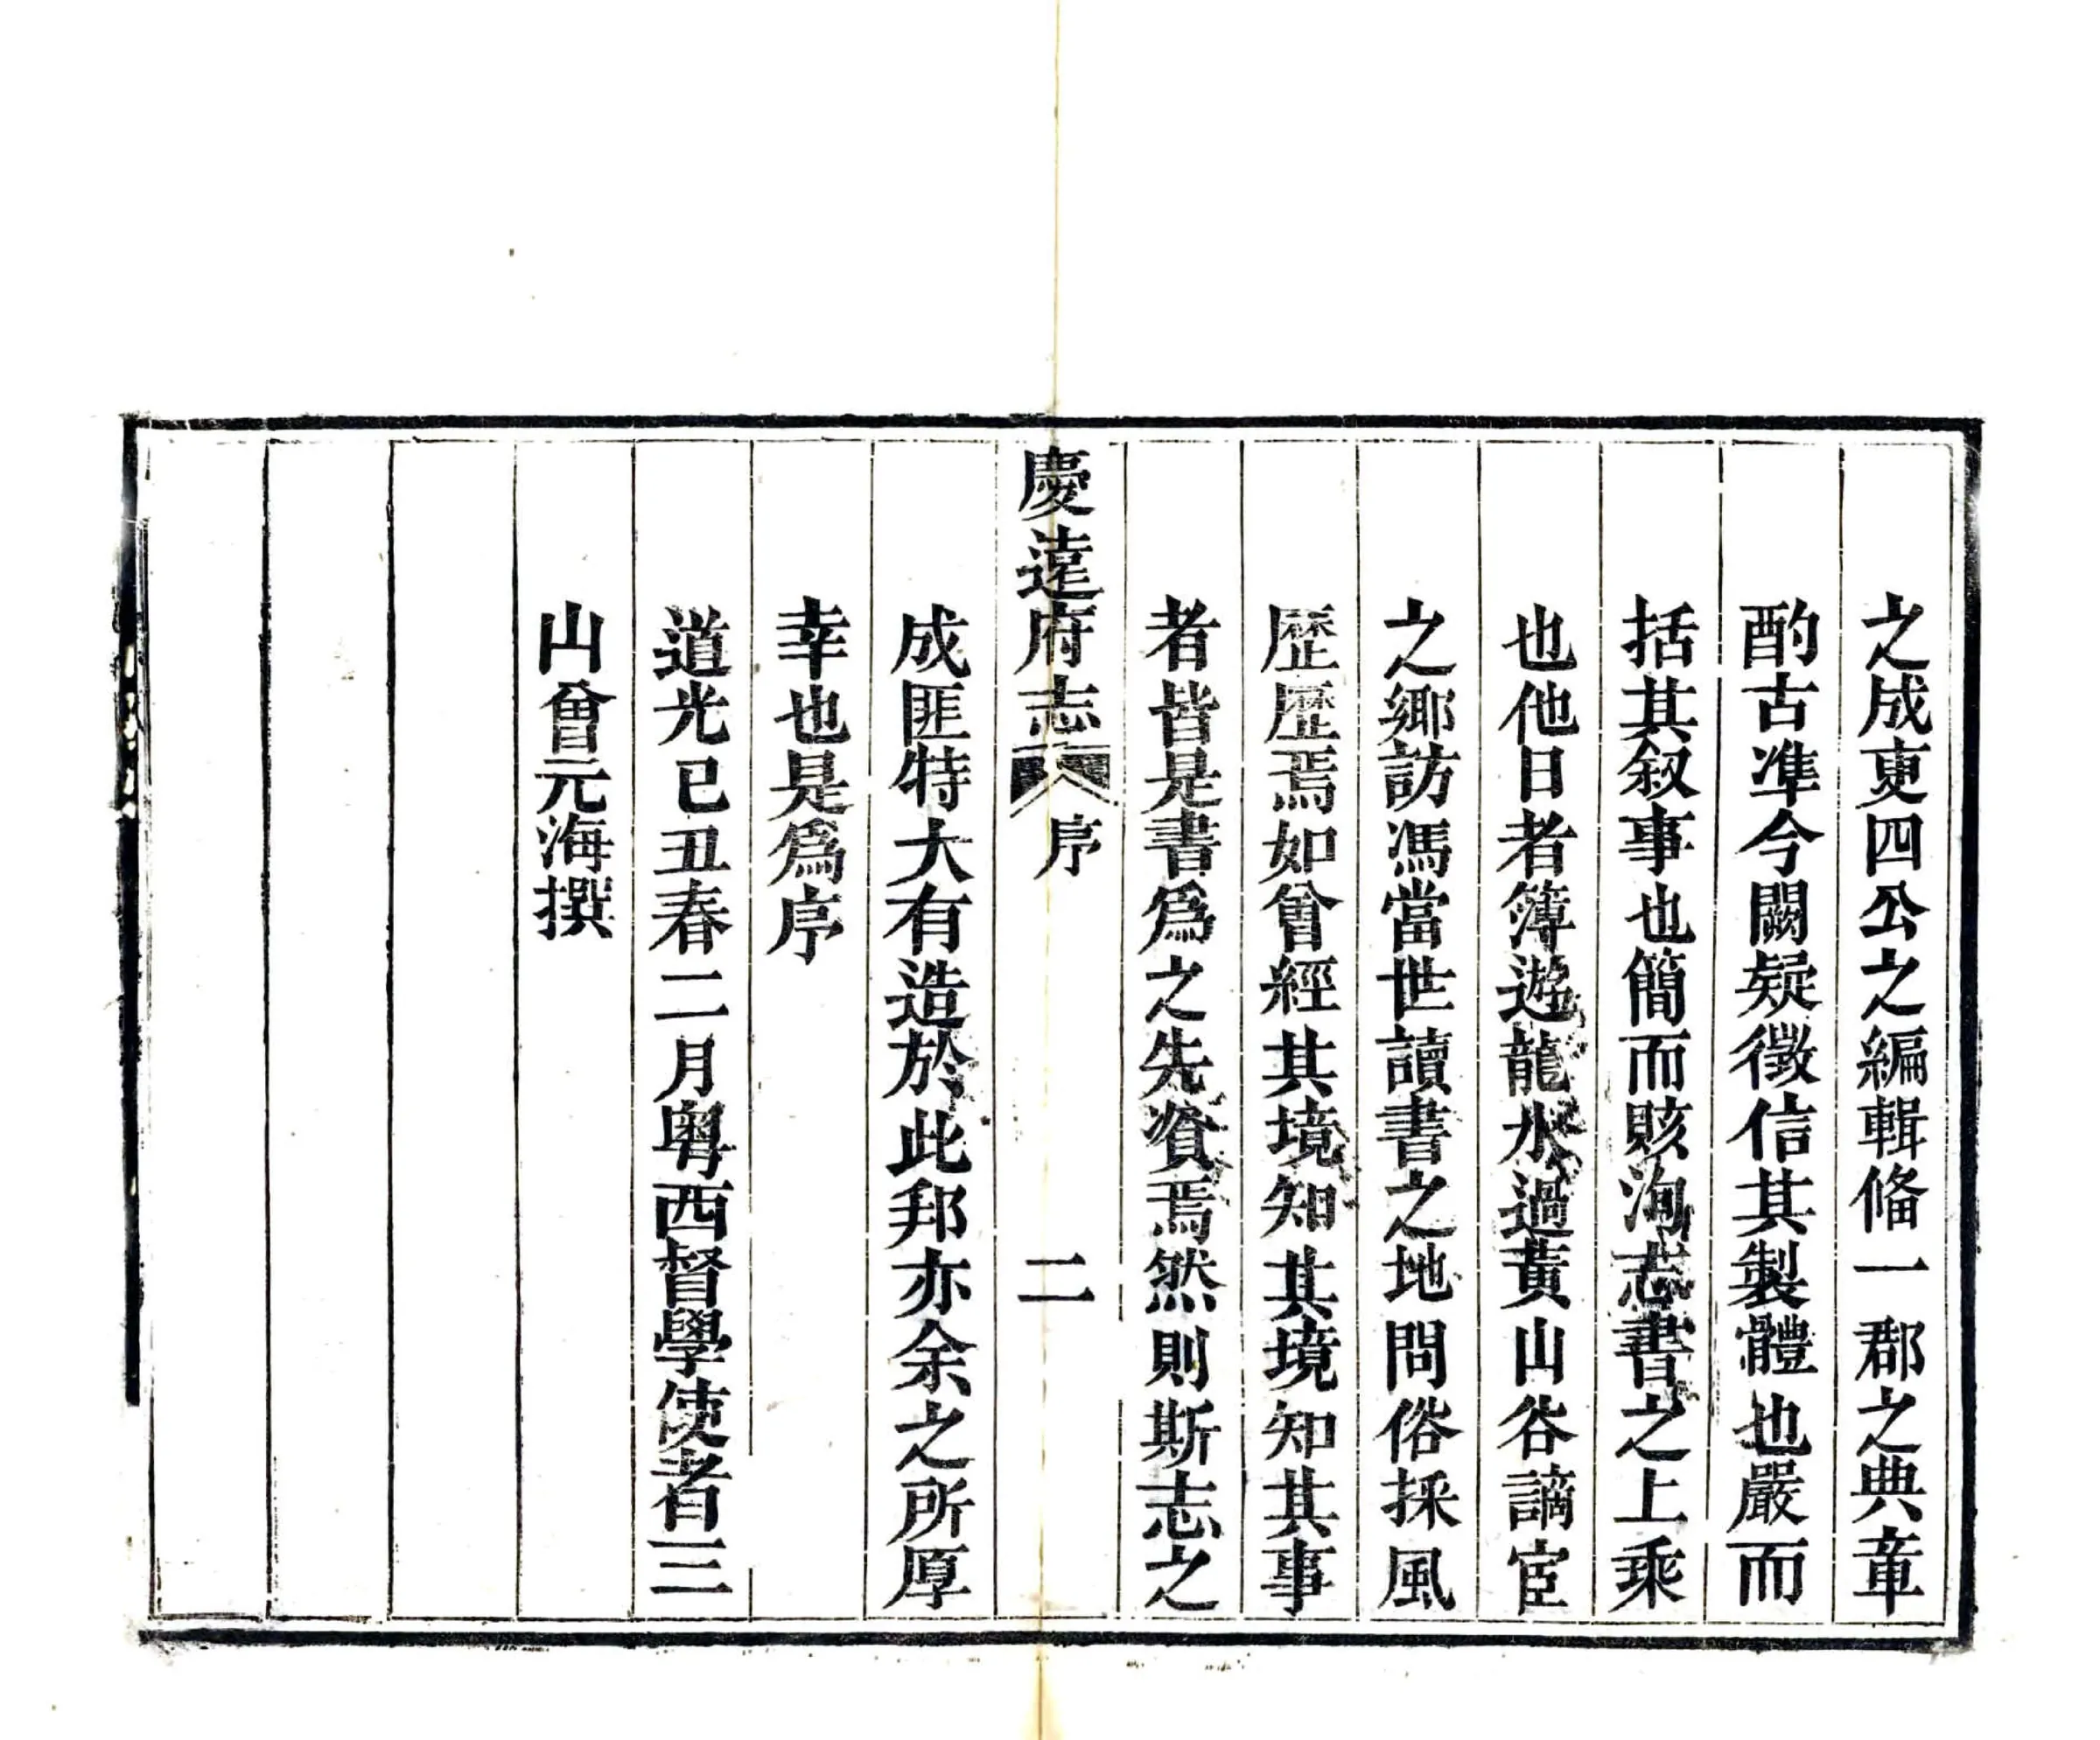 之成更四公之編輯俻一郡之典章
酌古凖今闕疑徵信其製體也嚴而
括其叙事也簡而賅洵志書之上乘
也他日者簿遊龍水過黃山谷謫宦
之鄉訪馮當世讀書之地問俗採風
歷歷焉如曾經其境知其境知其事
者皆是書爲之先資焉然則斯志之
慶遠府志 序 二
成匪特大有造於此邦亦余之所厚
幸也是爲序
道光己丑春二月粵西督學使者三
山曾元海撰